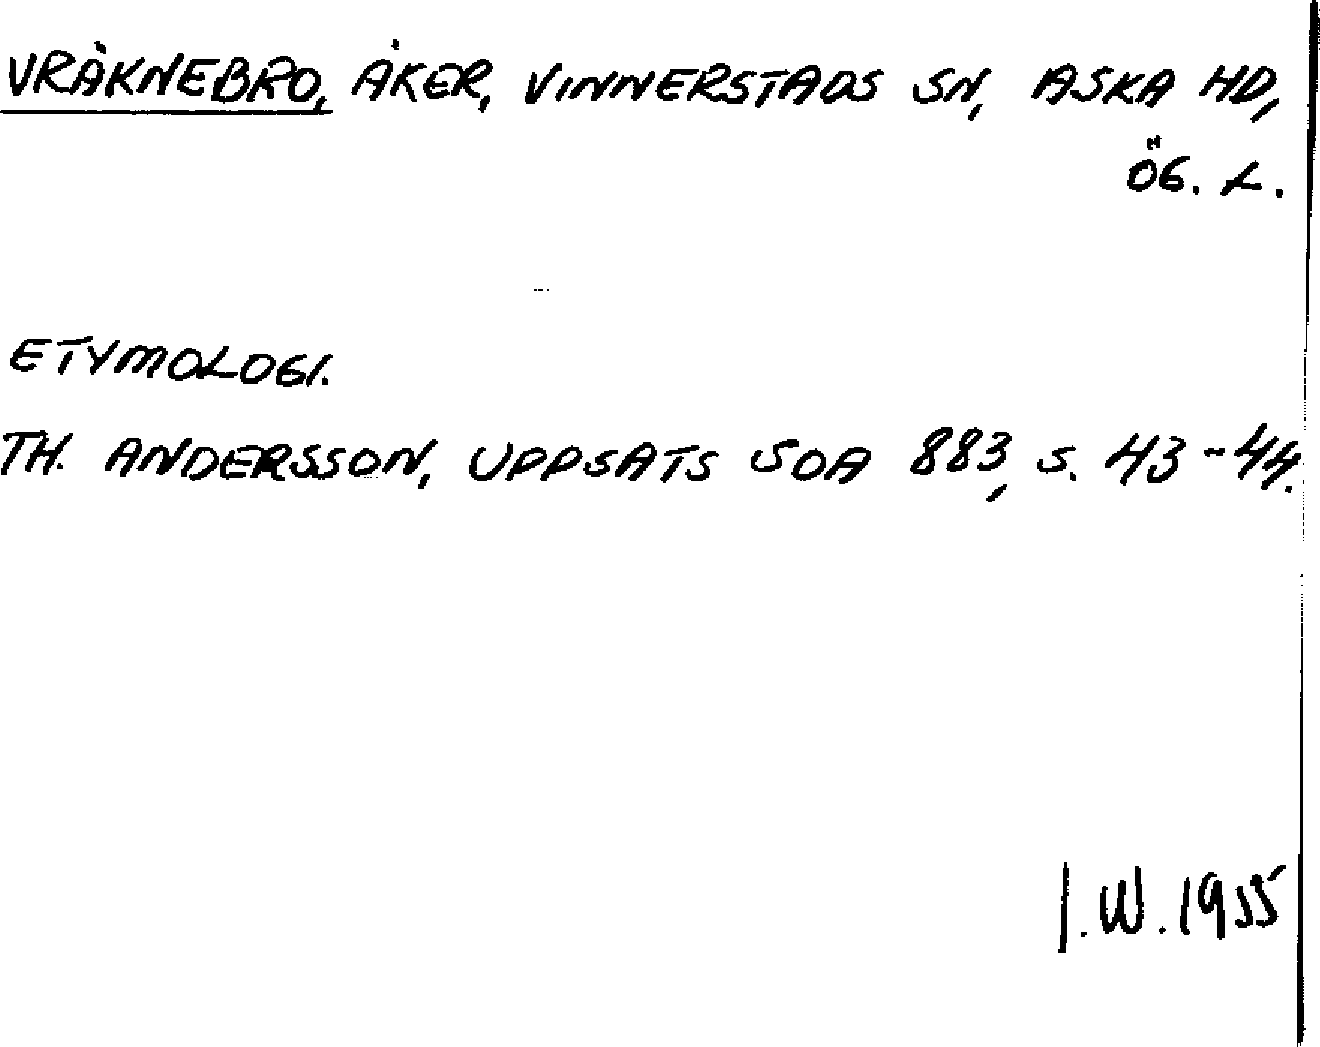 VRÅKNEBRO, ÅKER, VINNERSTADS SN, ASKA HD,
ÖG. L.
ETYMOLOGI.
TH. ANDERSSON, UPPSATS SOA 883, S. 43-44.
I.W. 1955